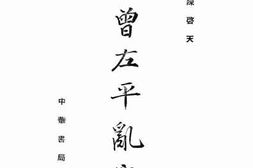 啓天
曾左平亂
中華書局